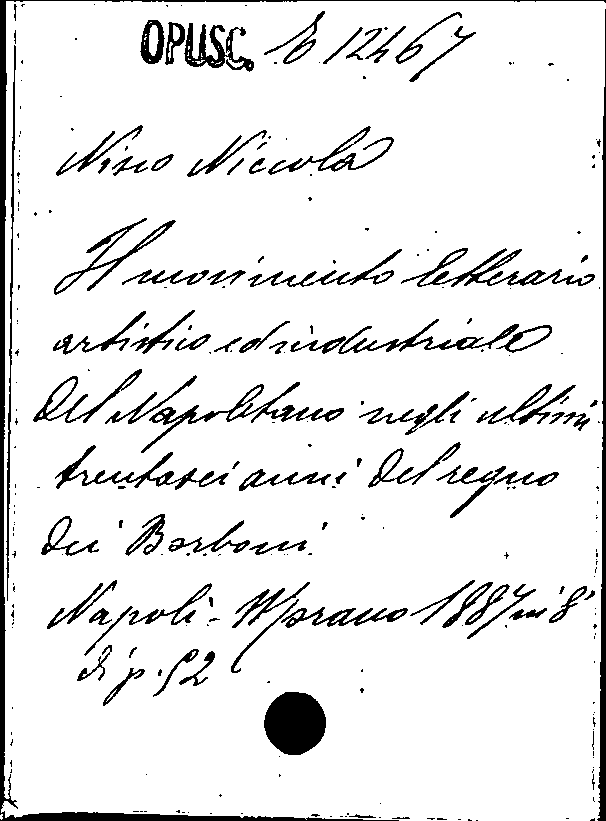 OPUSC. E 12467
Nisio Niccola
Il movimento letterario
artistico ed industriale
del Napoletano negli ultimi
trentasei anni del regno
dei Borboni
Napoli - 1887 in 8°
di p. 52